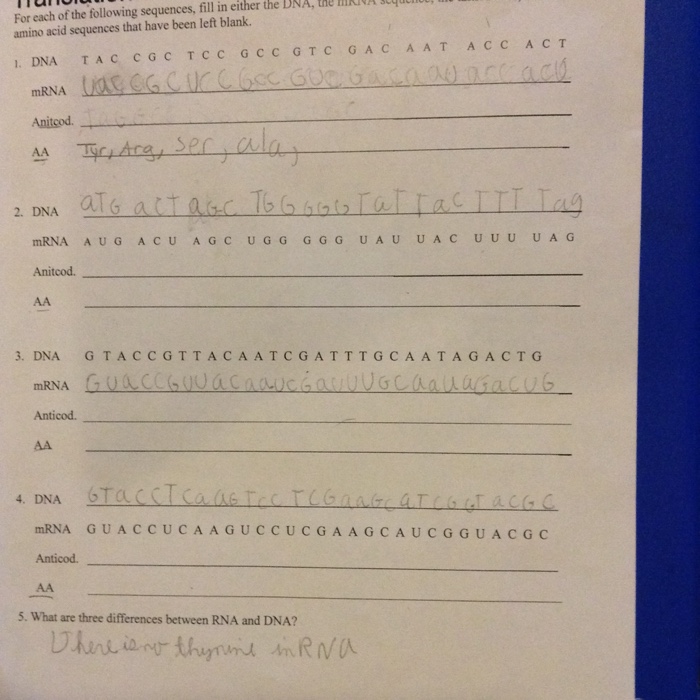 For each of the following sequences, fill in either the DNA, the mRNA sequence, the
amino acid sequences that have been left blank.
1. DNA TAC CGC TCC GCC GTC GAC AAT ACC ACT
mRNA UaC CGC UCC GCC GUC Gac aaU acc acU
Anitcod.
AA Tyr, Arg, ser, ala,
2. DNA aTG acT aGC TGG GGG TaT Tac TTT Tag
mRNA AUG ACU AGC UGG GGG UAU UAC UUU UAG
Anitcod.
AA
3. DNA GTACCGTTACAATCGATTTGCAATAGACTG
mRNA GUaCCGUUaCaaUCGaUUUGCaaUaGaCUG
Anticod.
AA
4. DNA GTaCCTCaaGTCCTCGaaGCaTCGGTaCGC
mRNA GUACCUCAAGUCCUCGAAGCAUCGGUACGC
Anticod.
AA
5. What are three differences between RNA and DNA?
There is no thymine in RNA